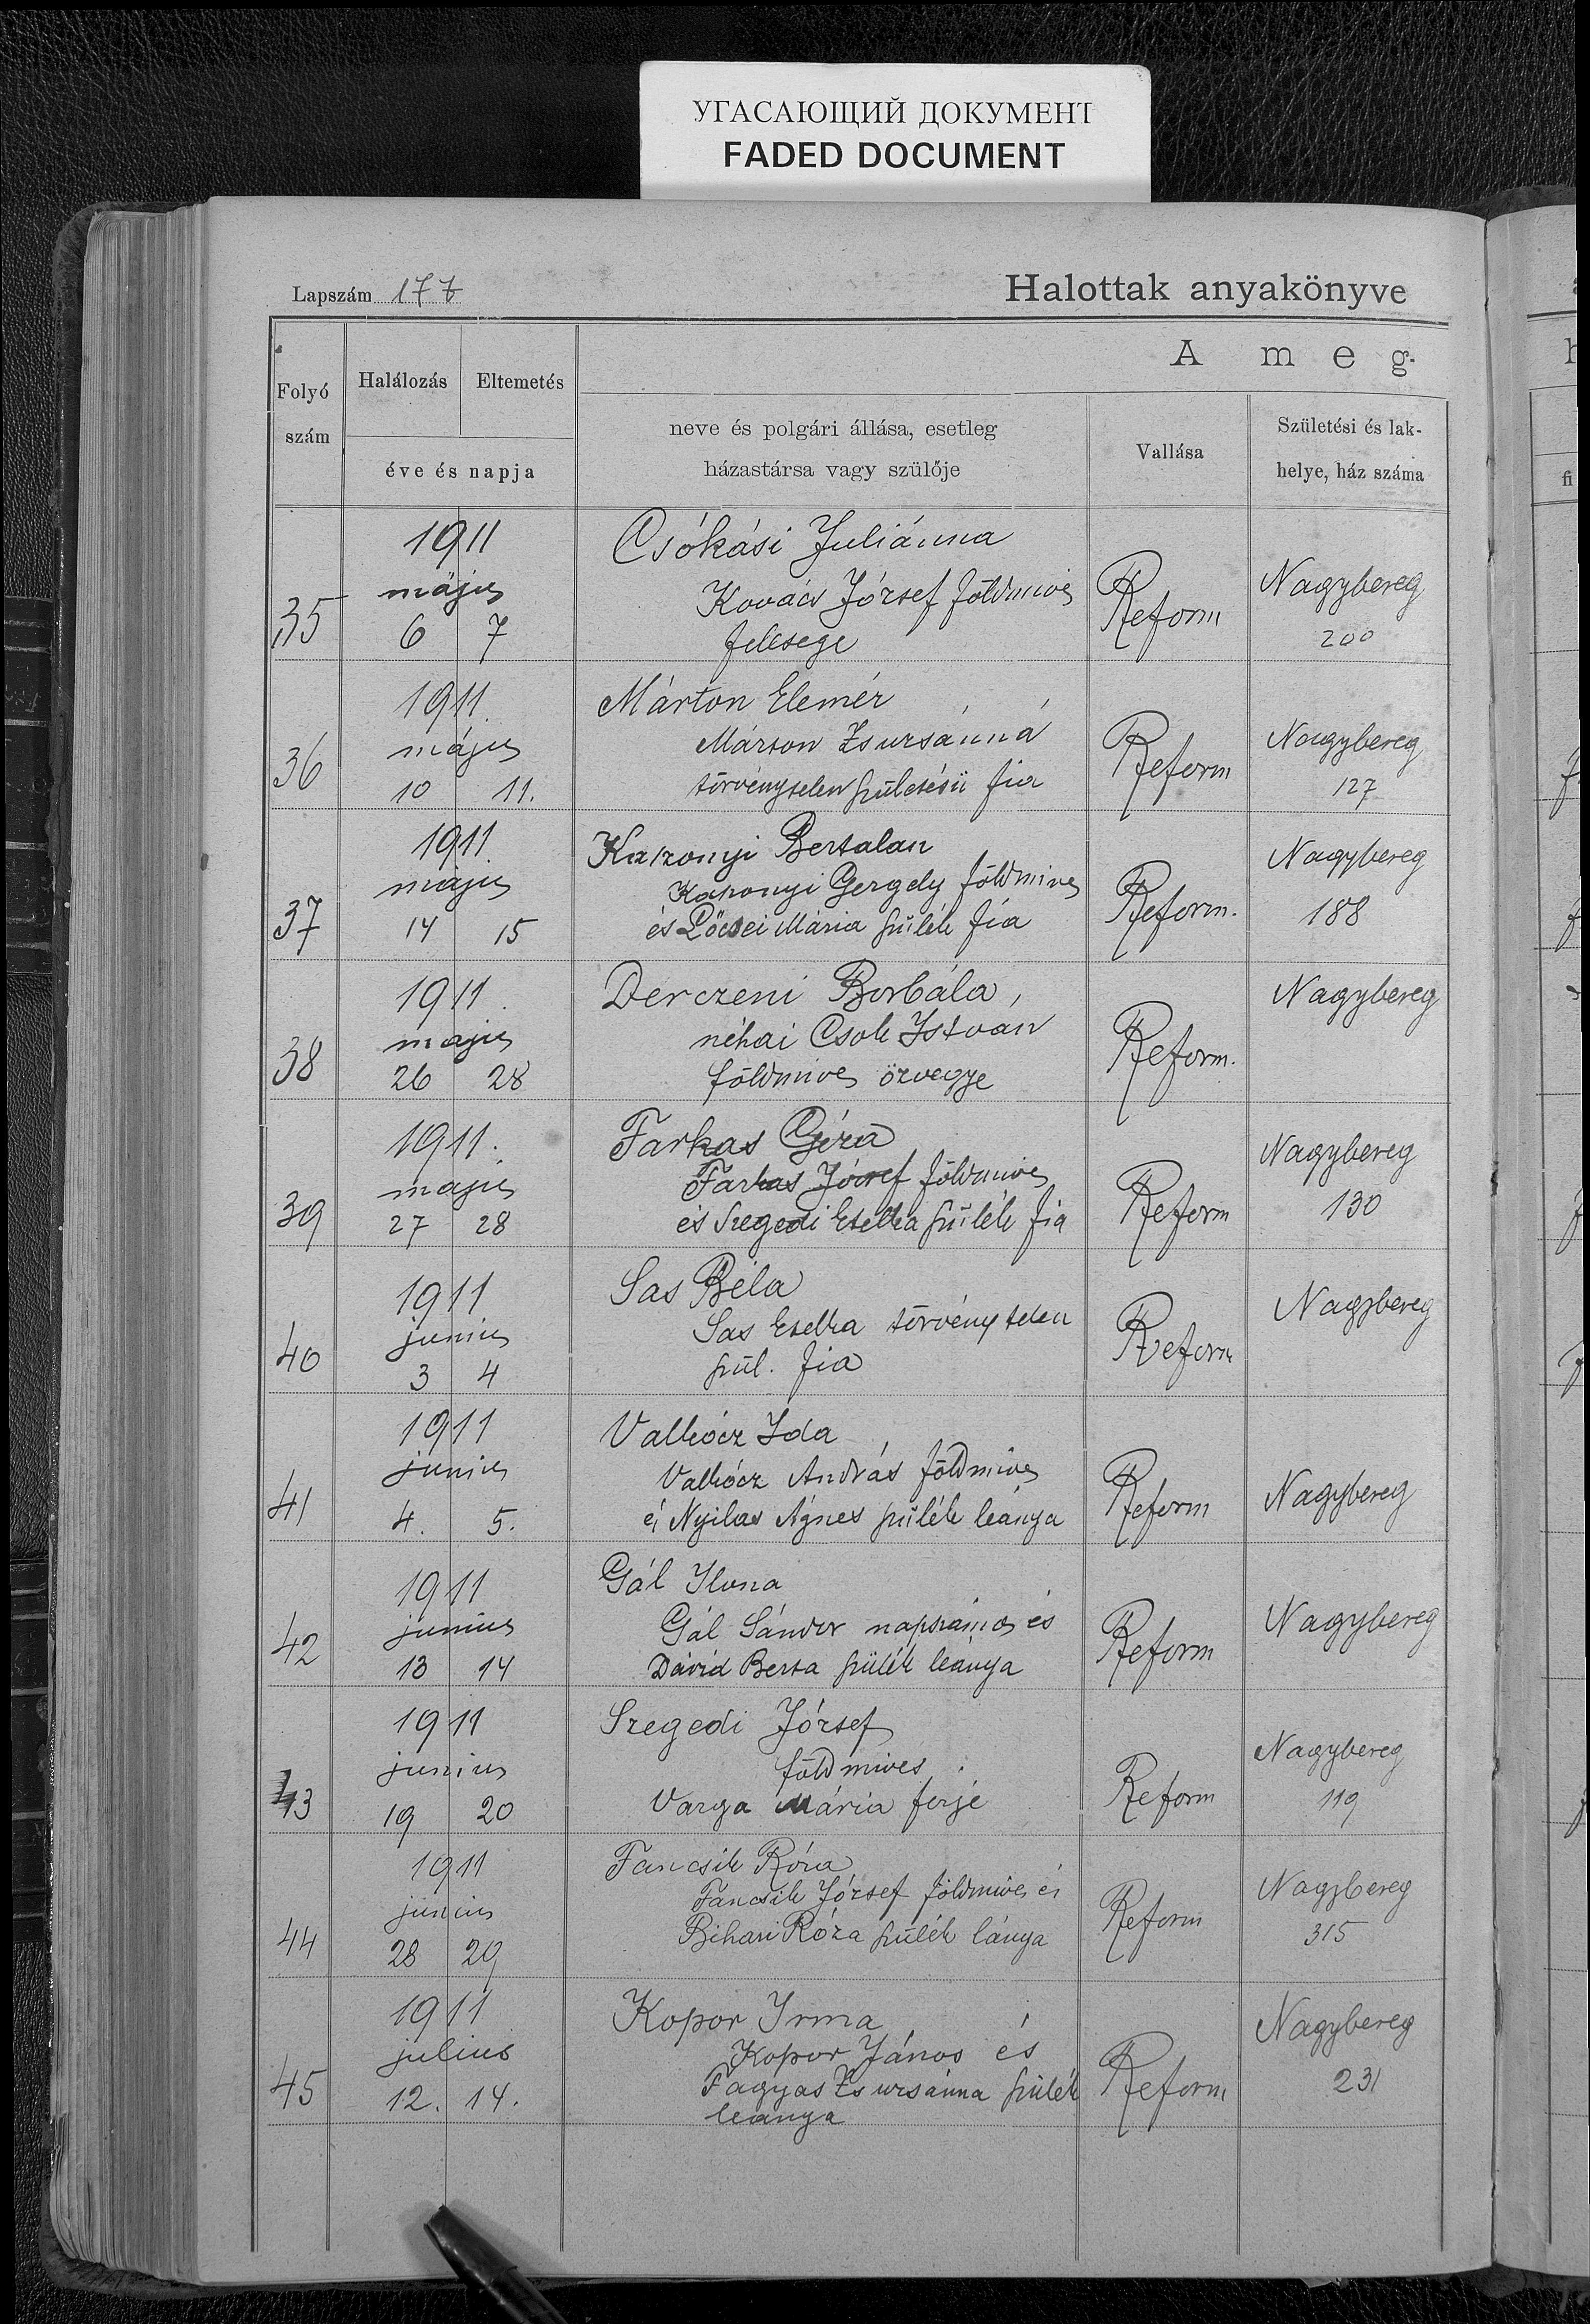 УГАСАЮЩИЙ ДОКУМЕНТ
FADED DOCUMENT
Lapszám 177
Halottak anyakönyve
A meg-
Folyó szám
Halálozás
Eltemetés
éve és napja
neve és polgári állása, esetleg
házastársa vagy szülője
Vallása
Születési és lak-
helye, ház száma
35
1911
május
6 7
Csókási Juliánna
Kovács József földmives
felesege
Reform
Nagybereg
200
36
1911.
május
10 11.
Márton Elemér
Márton Zsuzsánná
törvénytelen születésü fia
Reform
Nagybereg
127
37
1911.
május
14 15
Kaszonyi Bertalan
Kaszonyi Gergely földmives
és Pócsei Mária szülék fia
Reform.
Nagybereg
188
38
1911.
majus
26 28
Derczeni Borbála,
néhai Csok István
földmives özvegye
Reform.
Nagybereg
39
1911.
majus
27 28
Farkas Géza
Farkas József földmives
és Szegedi Eselka szülék fia
Reform
Nagybereg
130
40
1911
junius
3 4
Sas Béla
Sas Eselka törvénytelen
szül. fia
Reform
Nagybereg
41
1911
junius
4. 5.
Valkócz Ida
Valkócz András földmives
és Nyilas Ágnes szülék leánya
Reform
Nagybereg
42
1911
junius
13 14
Gál Ilona
Gál Sándor napszámos és
Dávid Berta szülék leánya
Reform
Nagybereg
43
1911
junius
19 20
Szegedi József
földmives
Varga Mária ferje
Reform
Nagybereg
119
44
1911
junius
28 29
Fancsik Róza
Fancsik József földmives és
Bihari Róza szülék lánya
Reform
Nagybereg
315
45
1911
julius
12. 14.
Kopor Irma
Kopor János és
Fagyas Zsuzsánna szülék
leánya
Reform
Nagybereg
231